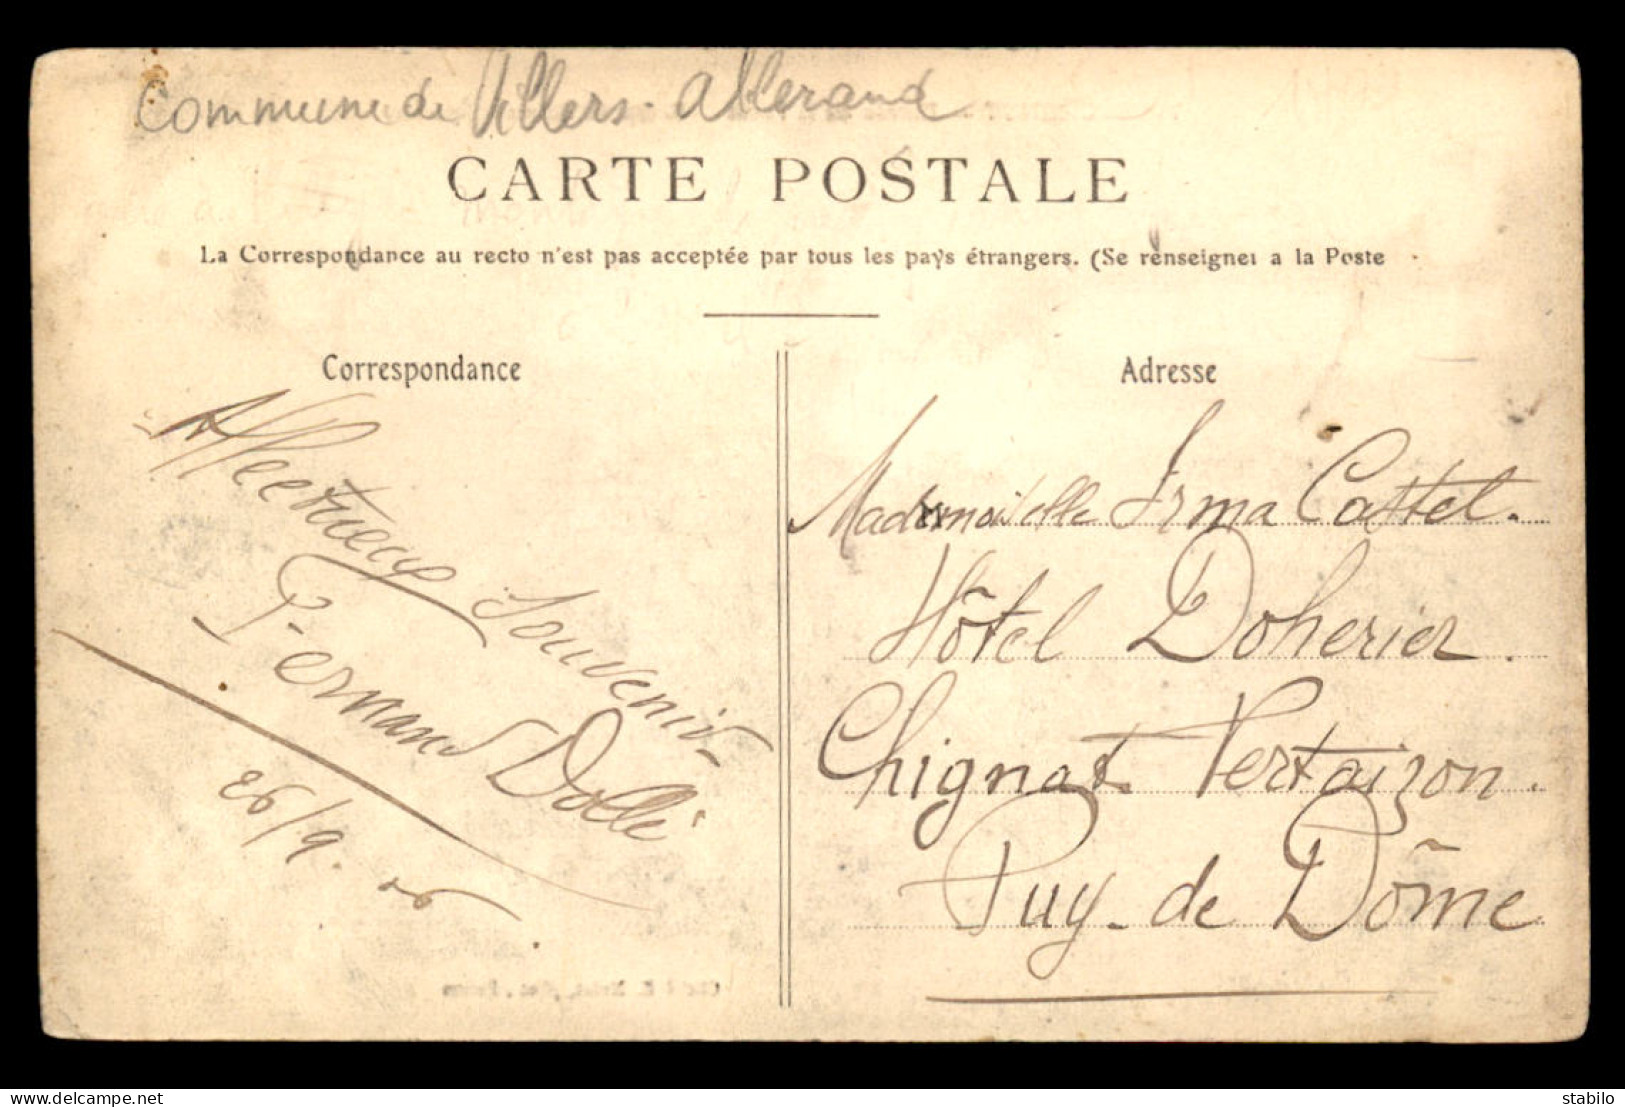 Commune de Villers-Allerand
CARTE POSTALE
La Correspondance au recto n'est pas acceptée par tous les pays étrangers. (Se renseigner a la Poste
Correspondance
Affectueux Souvenir
Fernand Dollé
26/9. 06
Adresse
Mademoiselle Irma Castel.
Hôtel Doherier.
Chignat Vertaizon.
Puy-de Dôme
delcampe.net
stabilo